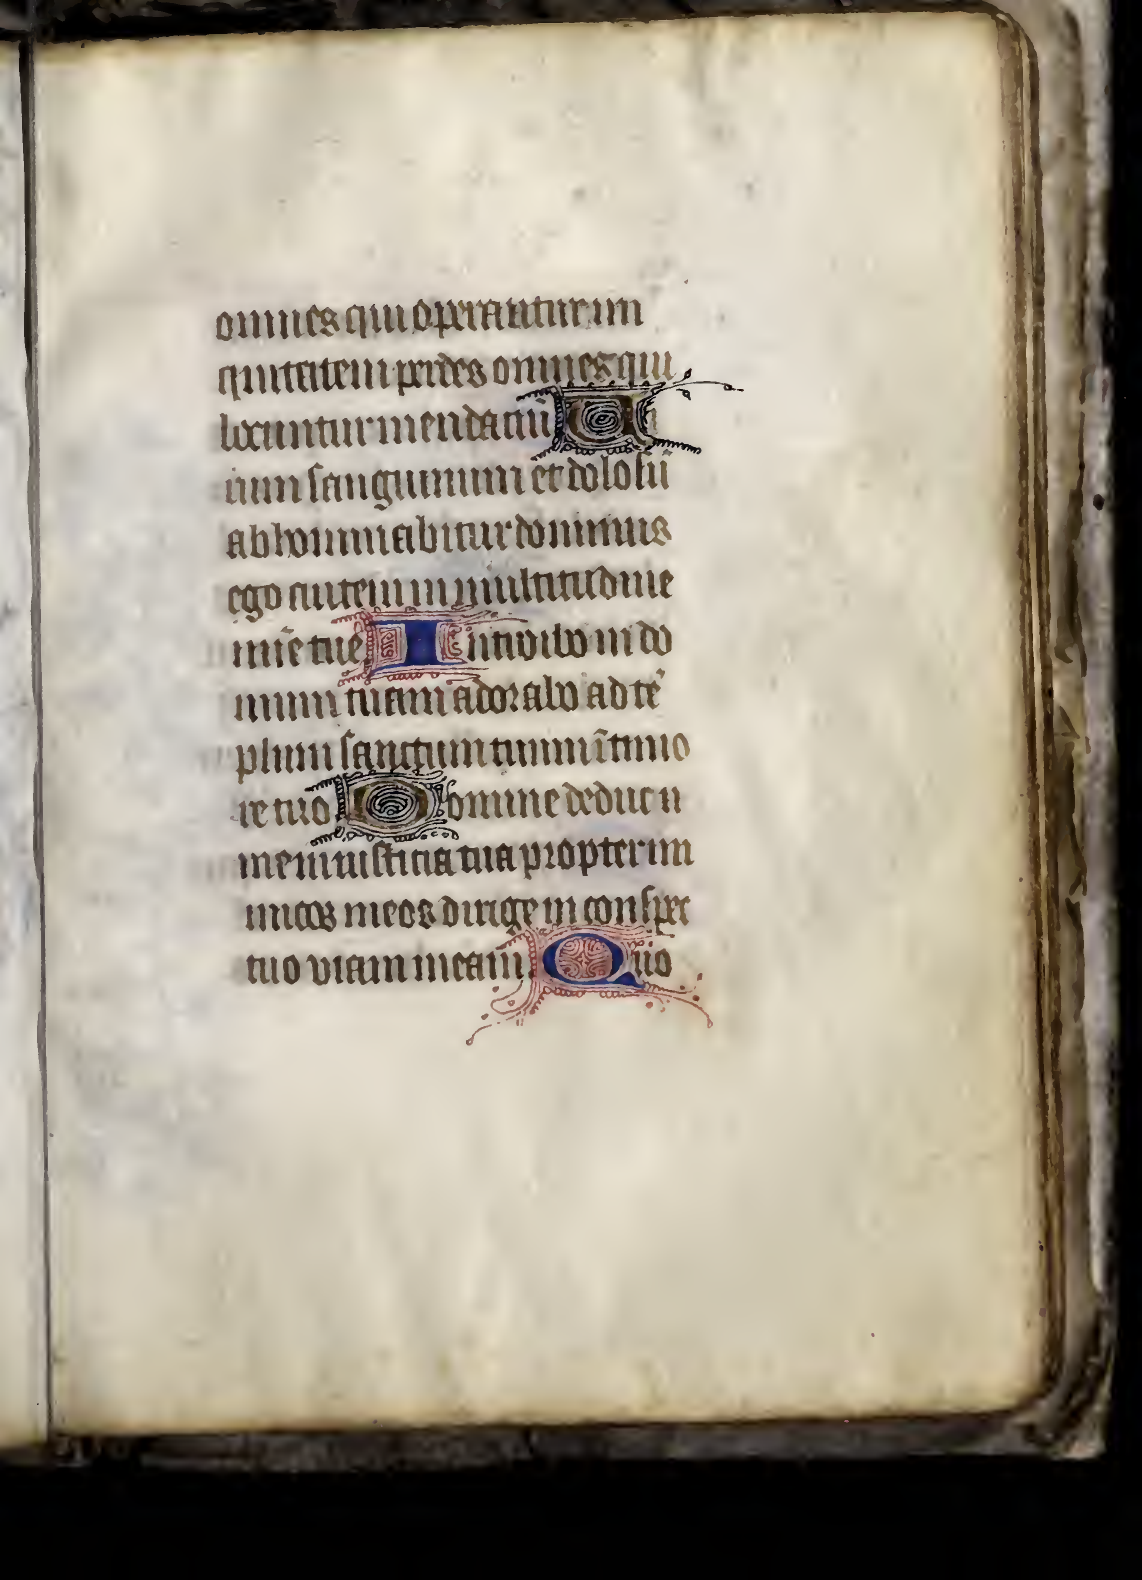 omnes qui operantur ini
quitatem perdes omnes qui
locuntur mendaciū Ui
rum sanguinum et dolosū
abhominabitur dominus
ego autem in multitudine
mīe tue Introibo in do
mum tuam adorabo ad tē
plum sanctum tuum ī timo
re tuo Domine deduc i
me in iusticia tua propter ini
micos meos dirige in conspec
tuo viam meam Quo